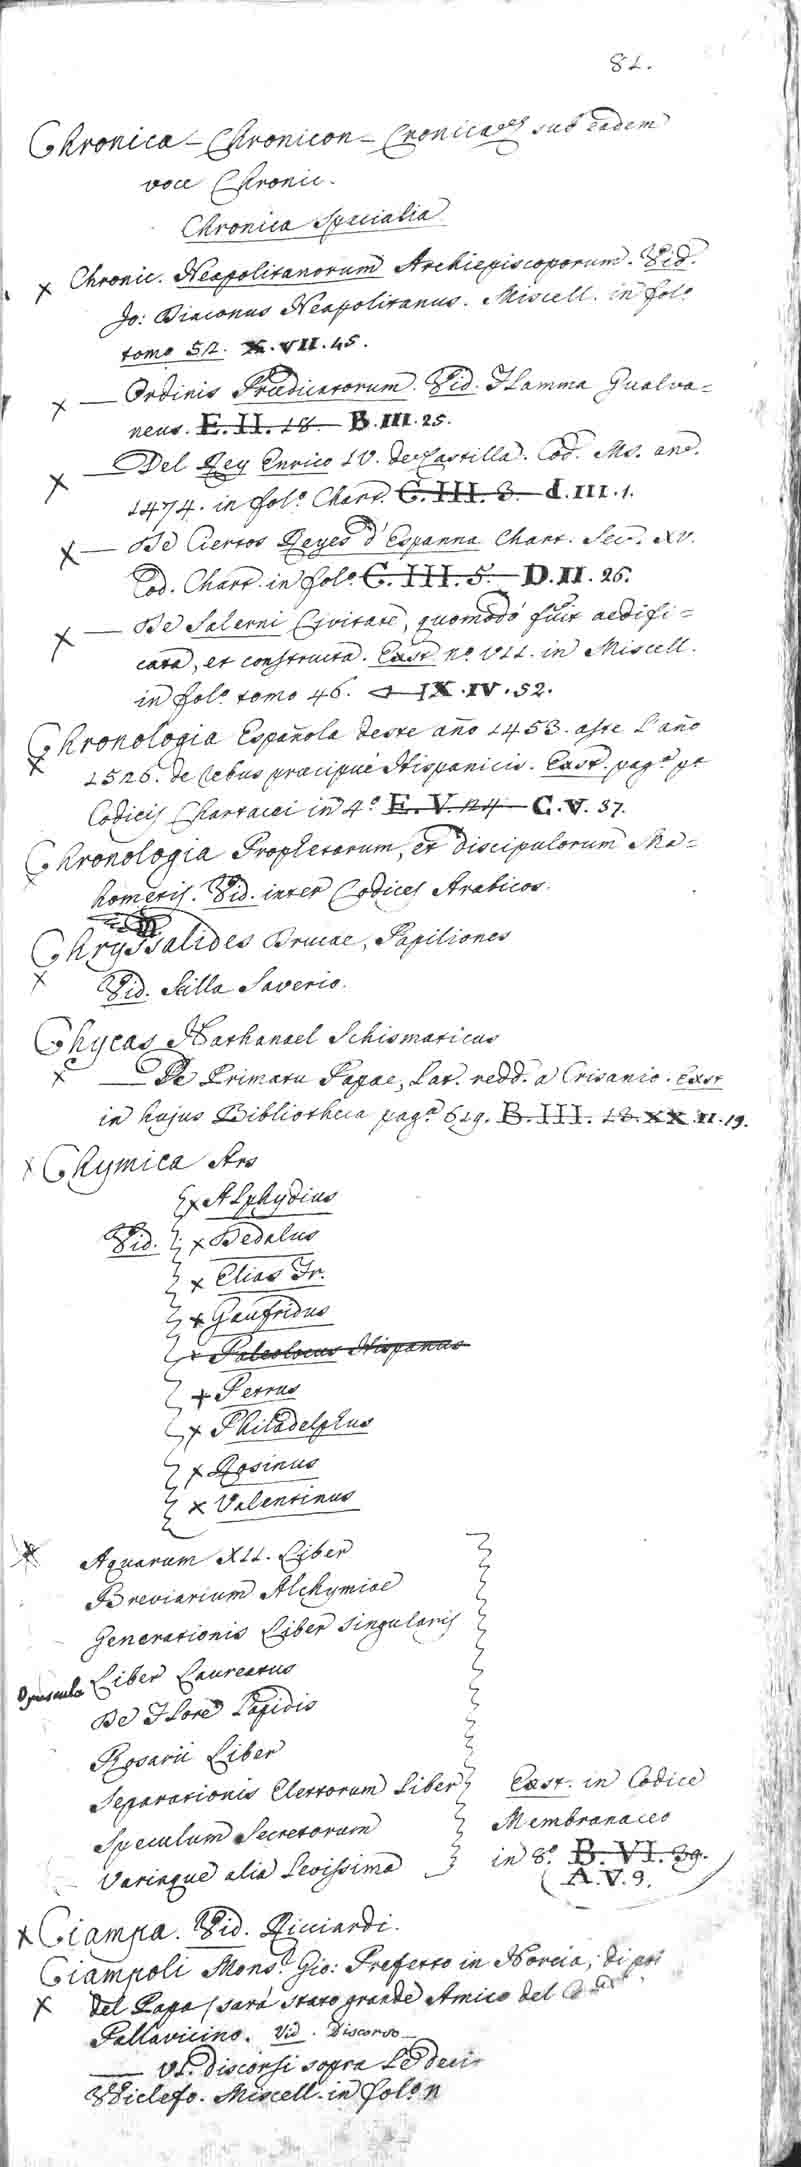 81.
Chronica - Chronicon - Cronica &c. sub eadem
voce Chronic.
Chronica Specialia
x Chronic. Neapolitanorum Archiepiscoporum. Vid.
Jo: Diaconus Neapolitanus. Miscell. in fol.º
tomo 52. X. VII. 45.
x — Ordinis Prædicatorum. Vid. Flamma Gualva=
neus. E. II. 18. B. III. 25.
x — Del Rey Enrico IV. de Castilla. Cod. Ms. an.
1474. in fol.º Chart. C. III. 3. d. III. 1.
x — De Ciertos Reyes d'Espanna Chart. Sec. XV.
Cod. Chart. in fol.º C. III. 5. D. II. 26.
x — De Salerni Civitate, quomodò fuit aedifi=
cata, et constructa. Exst. n.º VII. in Miscell.
in fol.º tomo 46. IX. IV. 52.
Chronologia Española deste año 1453. aste l'año
x 1526. de rebus præcipuè Hispanicis. Exst. pag.ª
Codicis Chartacei in 4.º E. V. 24 C. V. 37.
Chronologia Prophetarum, et discipulorum Ma=
x hometis. Vid. inter Codices Arabicos.
Chryssalides Brucae, Papiliones
x Vid. Scilla Saverio.
Chycas Nathanael Schismaticus
x — De Primatu Papae, Lat. redd. a Crisanio. Exst
in hujus Bibliotheca pag.ª 619. B. III. 18. XX. II. 19.
x Chymica Ars
x Alphydius
Vid. x Dedalus
x Elias Fr.
x Gaufridus
x Paleolocus Hispanus
+ Petrus
x Philadelphus
x Rosinus
x Valentinus
Aquarum XII. Liber
Breviarium Alchymiae
Generationis Liber singularis
Opuscula Liber Laureatus
De Flore Lapidis
Rosarii Liber
Separationis Elettorum Liber Exst. in Codice
Speculum Secretorum Membranaceo
Variaque alia Levissima in 8.º B. VI. 39.
A. V. 9.
x Ciampa. Vid. Ricciardi.
Ciampoli Mons.r Gio: Prefetto in Norcia, di
x del Papa (sarà stato grande Amico del
Pallavicino. Vid. Discorso
— VI. discorsi sopra
Wiclefo. Miscell. in fol.º